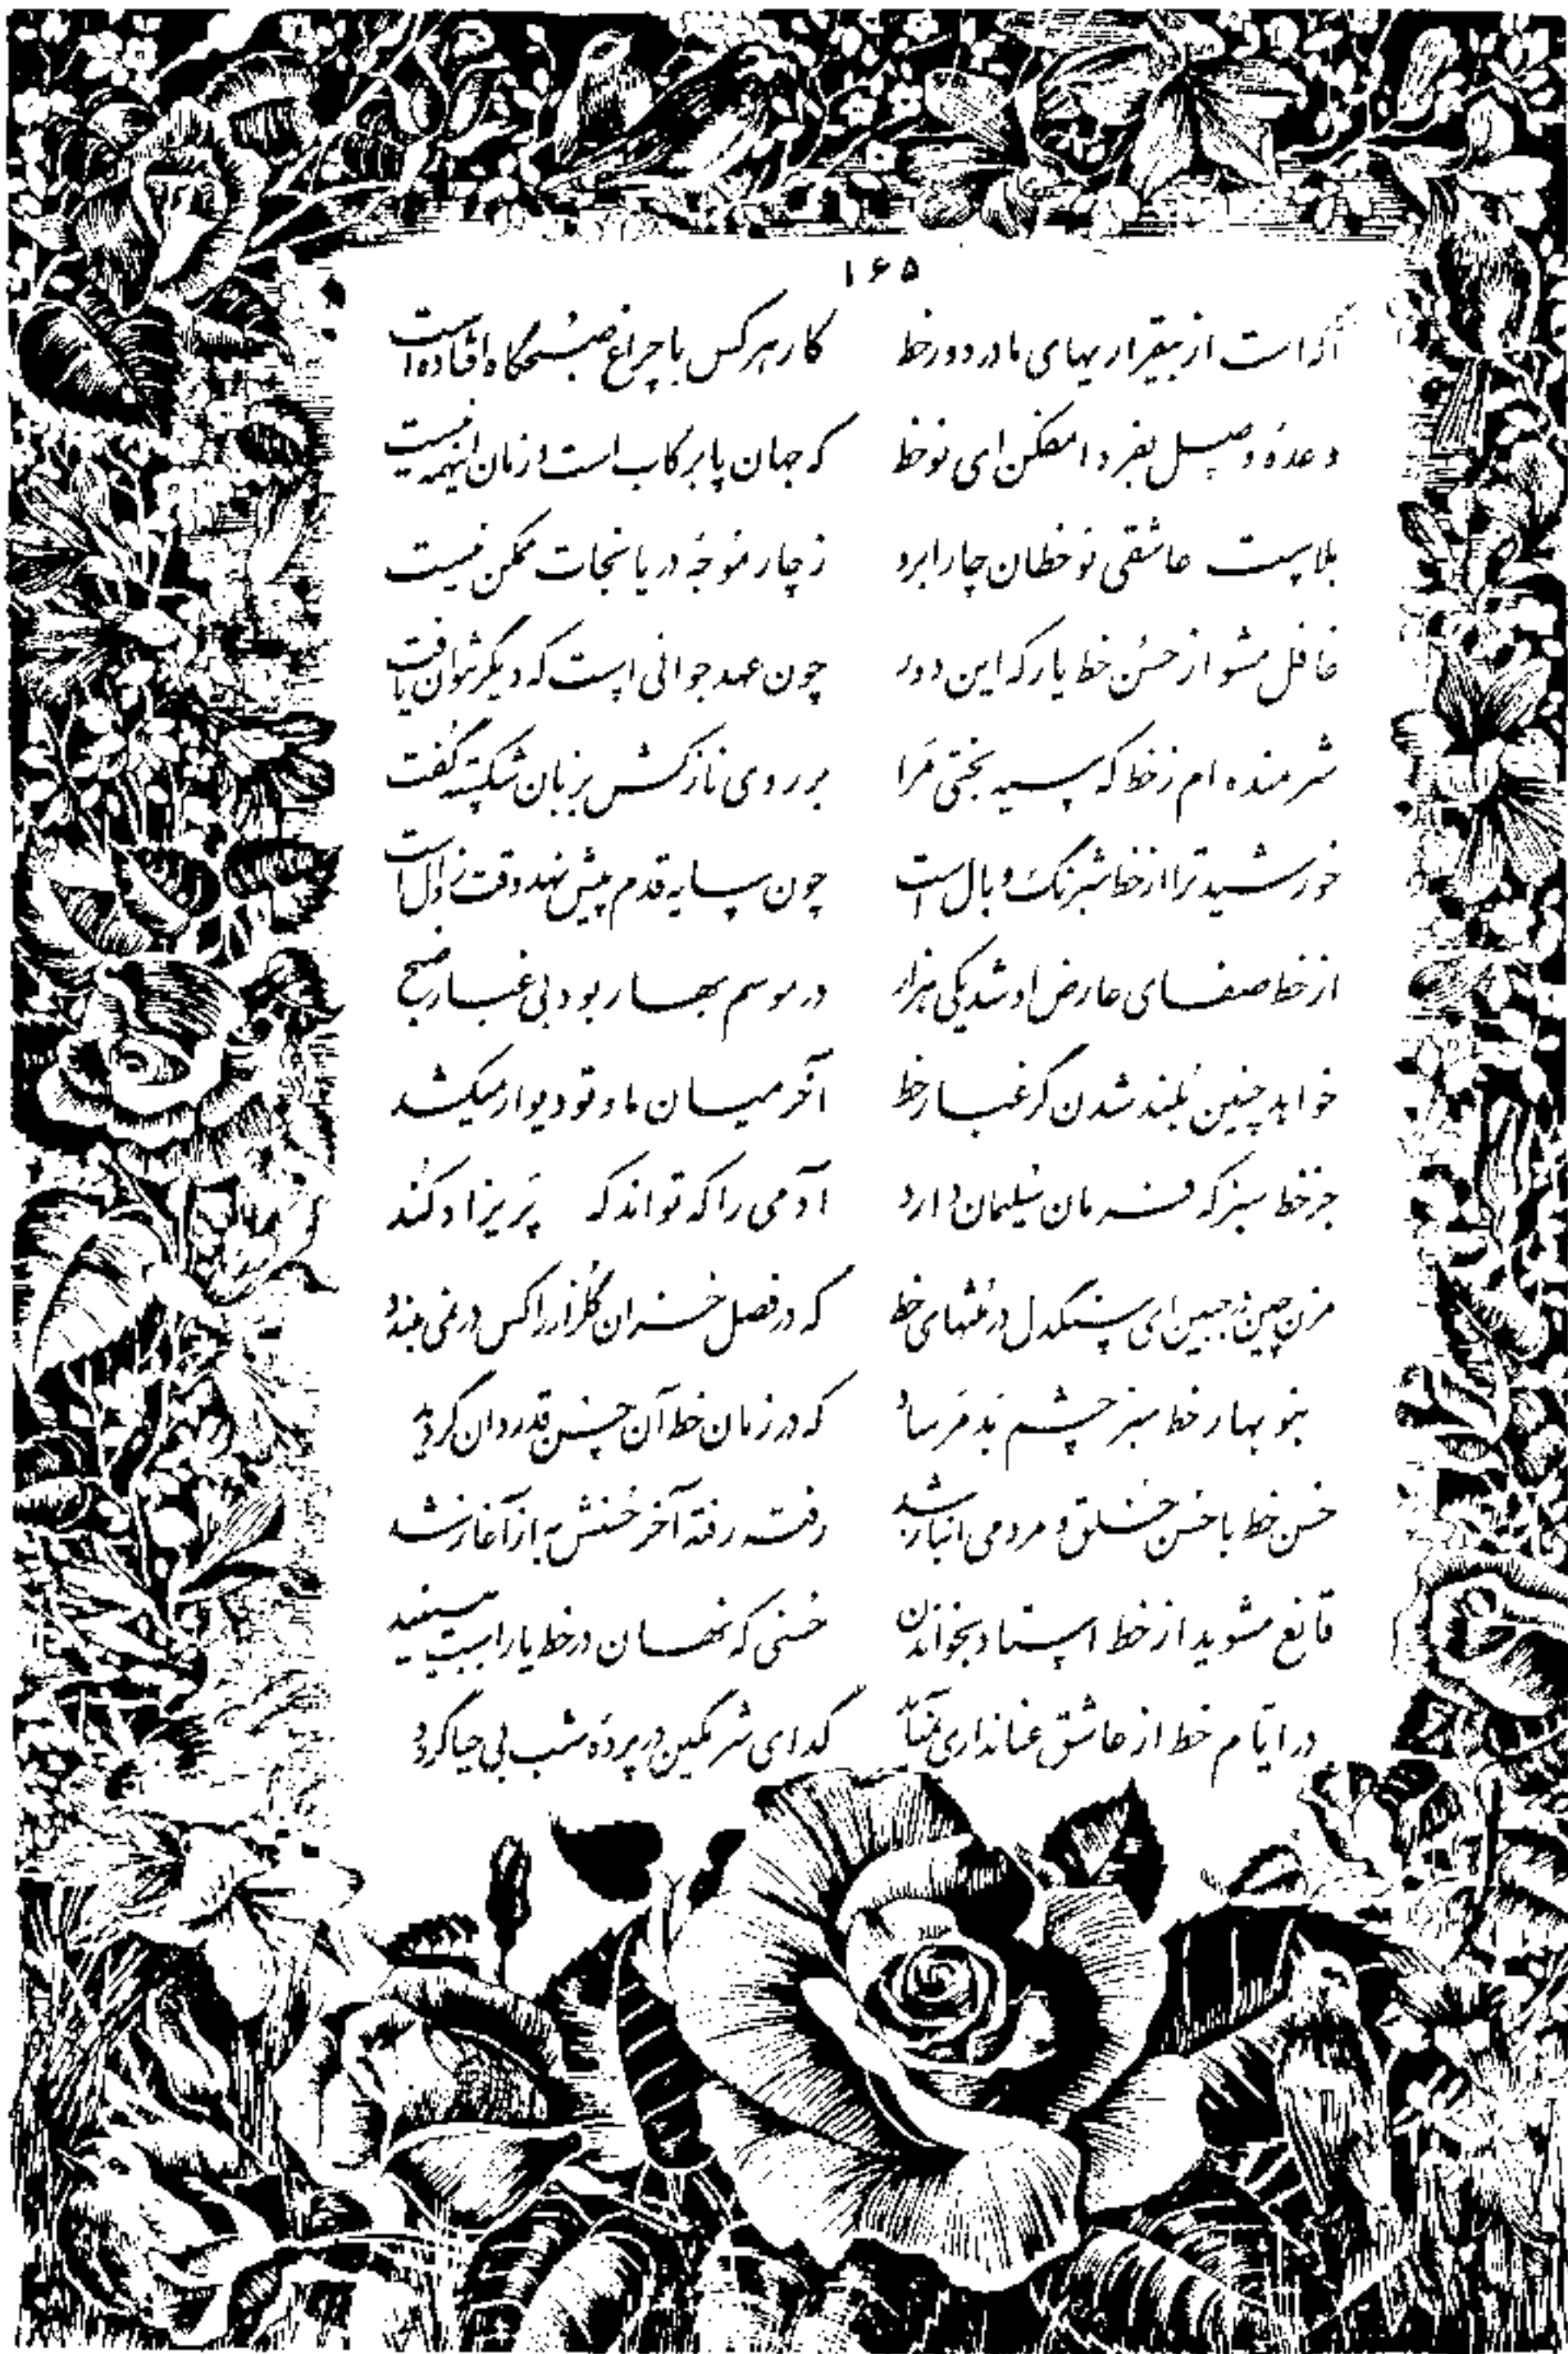 ۱۶۵
آگه است از بیقراریهای ما در دور خط کار هر کس با چراغ صبحگاه افتاده است
وعده وصل بفردا مفکن ای نوخط که جهان پا برکاب است و زمان اینهمه نیست
بلاست عاشقی نوخطان چار ابرو ز چار موجه دریا نجات ممکن نیست
غافل مشو از حسن خط یار که این دور چون عهد جوانی است که دیگر نتوان یافت
شرمنده ام ز خط که سیه بختی مرا بر روی نازکش بزبان شکسته گفت
خورشید ترا از خط شبرنگ وبال است چون سایه قدم پیش نهد وقت زوال است
از خط صفای عارض او شد یکی هزار در موسم بهار بود بی غبار صبح
خواهد چنین بلند شدن گر غبار خط آخر میان ما و تو دیوار میکشد
جز خط سبز که فرمان سلیمان دارد آدمی را که تواند که پریزاد کند
مزن چین بر جبین ای سنگدل در منتهای خط که در فصل خزان گلزار را کس در نمی بندد
بنو بهار خط سبز چشم بد مرساد که در زمان خط آن حسن قدردان گردید
حسن خط با حسن خلق و مردمی انباز شد رفته رفته آخر حسنش به از آغاز شد
قانع مشوید از خط استاد بخواندن حسنی که نهان در خط یار است ببینید
در ایام خط از عاشق عنانداری نمیآید گدای شرمگین در پرده شب بی حیا گردد